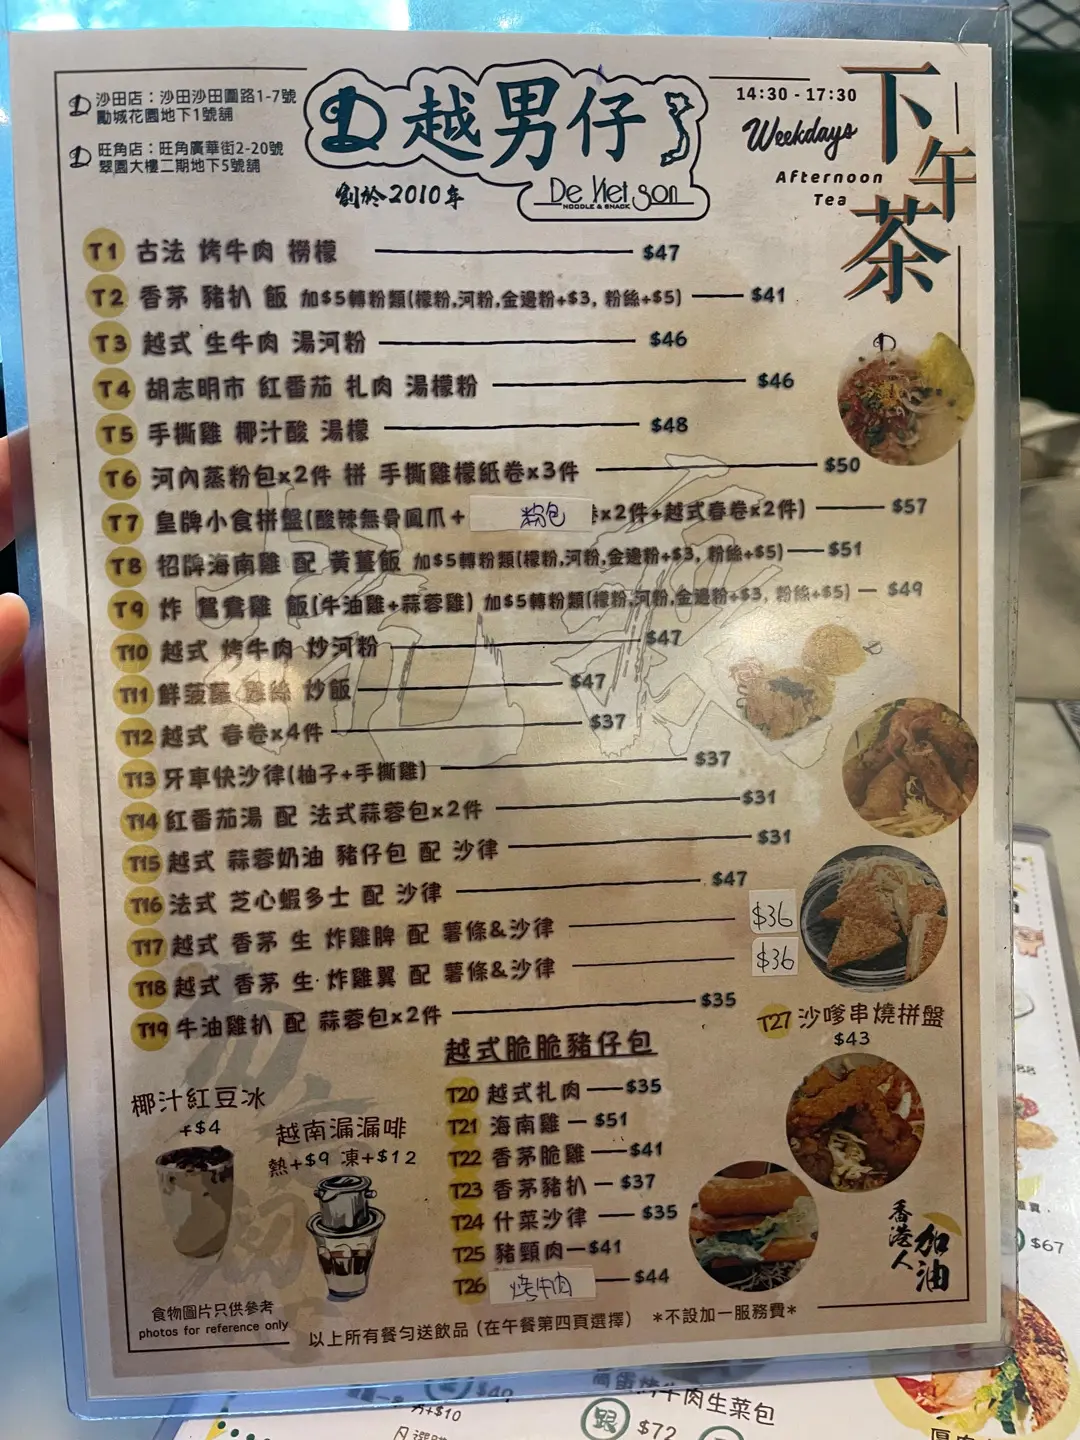 沙田店：沙田沙田圍路1-7號
勵城花園地下1號舖
旺角店：旺角廣華街2-20號
翠園大樓二期地下5號舖
越男仔
創於2010年
De Viet Son
NOODLE & SNACK
14:30 - 17:30
Weekdays
Afternoon
Tea
下午茶
T1 古法 烤牛肉 撈檬 $47
T2 香茅 豬扒 飯 加$5轉粉類(檬粉,河粉,金邊粉+$3, 粉絲+$5) $41
T3 越式 生牛肉 湯河粉 $46
T4 胡志明市 紅番茄 扎肉 湯檬粉 $46
T5 手撕雞 椰汁酸 湯檬 $48
T6 河內蒸粉包x2件 拼 手撕雞檬紙卷x3件 $50
T7 皇牌小食拼盤(酸辣無骨鳳爪+ 粉包 x2件+越式春卷x2件) $57
T8 招牌海南雞 配 黃薑飯 加$5轉粉類(檬粉,河粉,金邊粉+$3, 粉絲+$5) $51
T9 炸 鴛鴦雞 飯(牛油雞+蒜蓉雞) 加$5轉粉類(檬粉,河粉,金邊粉+$3, 粉絲+$5) $49
T10 越式 烤牛肉 炒河粉 $47
T11 鮮菠蘿 雞絲 炒飯 $47
T12 越式 春卷x4件 $37
T13 牙車快沙律(柚子+手撕雞) $37
T14 紅番茄湯 配 法式蒜蓉包x2件 $31
T15 越式 蒜蓉奶油 豬仔包 配 沙律 $31
T16 法式 芝心蝦多士 配 沙律 $47
T17 越式 香茅 生 炸雞脾 配 薯條&沙律 $36
T18 越式 香茅 生 炸雞翼 配 薯條&沙律 $36
T19 牛油雞扒 配 蒜蓉包x2件 $35
T27 沙嗲串燒拼盤
$43
越式脆脆豬仔包
T20 越式扎肉 $35
T21 海南雞 $51
T22 香茅脆雞 $41
T23 香茅豬扒 $37
T24 什菜沙律 $35
T25 豬頸肉 $41
T26 烤牛肉 $44
椰汁紅豆冰
+$4
越南漏漏啡
熱+$9 凍+$12
香港人
加油
食物圖片只供參考
photos for reference only
以上所有餐勻送飲品 (在午餐第四頁選擇) *不設加一服務費*
$67
$40
+$10
牛肉生菜包
跟 $72